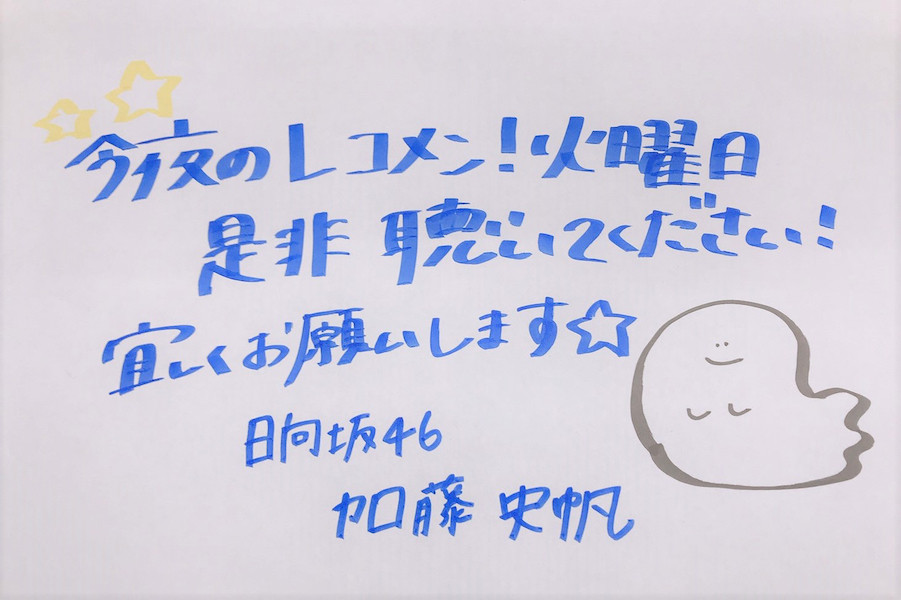 今夜のレコメン!火曜日
是非 聴いてください!
宜しくお願いします☆
日向坂46
加藤 史帆